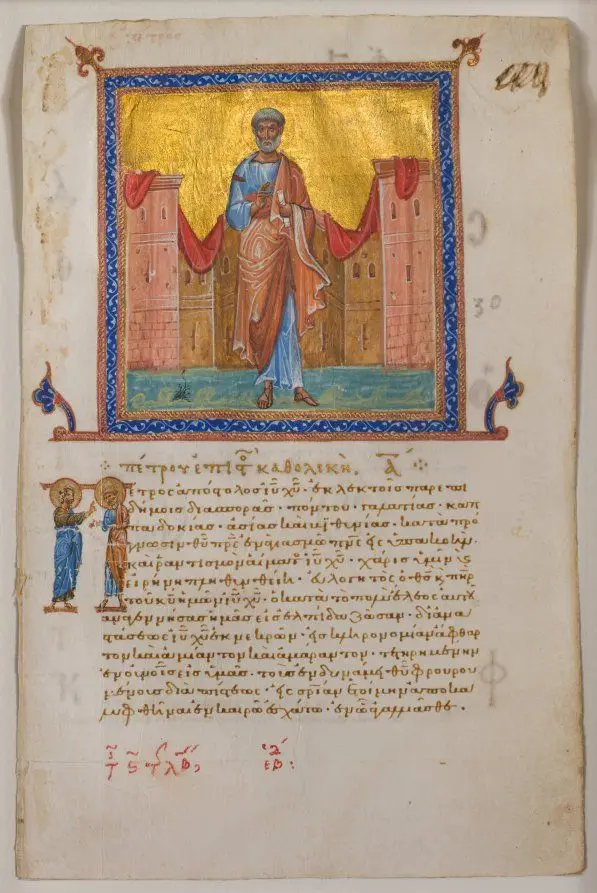 πέτρου ἐπιστολὴ καθολικὴ. Α
Πέτρος ἀπόστολος ι̅υ̅ χ̅υ̅· ἐκλεκτοῖς παρεπι
δήμοις διασπορᾶς· πόντου· γαλατίας· καπ
παδοκίας· ἀσίας καὶ βιθυνίας· κατὰ πρό
γνωσιν θ̅υ̅ π̅ρ̅ς̅· ἐν ἁγιασμῶ π̅ν̅ς̅· εἰς ὑπακοὴν·
καὶ ῥαντισμὸν αἵματος ι̅υ̅ χ̅υ̅· χάρις ὑμῖν καὶ
εἰρήνη πληθυνθείη· εὐλογητὸς ὁ θ̅ς̅ καὶ π̅η̅ρ̅
τοῦ κ̅υ̅ ἡμῶν ι̅υ̅ χ̅υ̅· ὁ κατὰ τὸ πολὺ ἔλεος αὐτοῦ
ἀναγεννήσας ἡμᾶς εἰς ἐλπίδα ζῶσαν· δι ἀνα
στάσεως ι̅υ̅ χ̅υ̅ ἐκ νεκρῶν· εἰς κληρονομίαν ἄφθαρ
τον καὶ ἀμίαντον καὶ ἀμάραντον· τετηρημένην
ἐν ο̅υ̅ν̅ο̅ι̅ς̅ εἰς ὑμᾶς· τοὺς ἐν δυνάμει θ̅υ̅ φρουρου
μένους διὰ πίστεως· εἰς σ̅ρ̅ί̅α̅ν̅ ἑτοίμην ἀποκα
λυφθῆναι ἐν καιρῶ ἐσχάτω· ἐν ὧ ἀγαλλιᾶσθε·